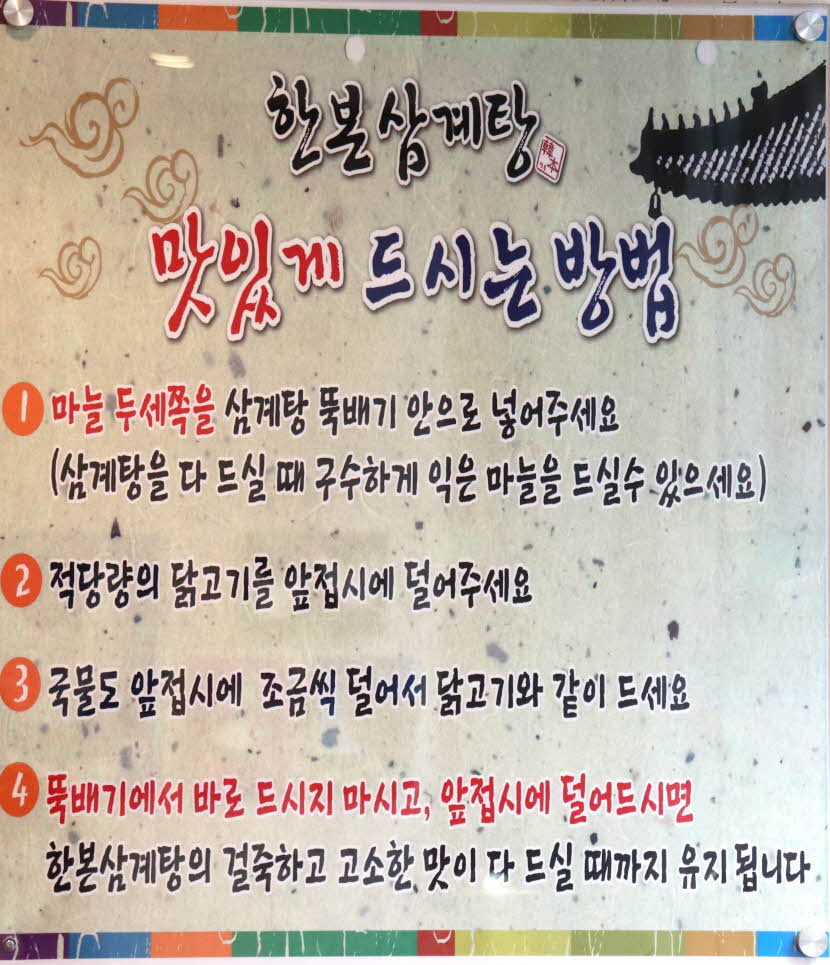 한본삼계탕
韓本
맛있게 드시는 방법
1 마늘 두세쪽을 삼계탕 뚝배기 안으로 넣어주세요
(삼계탕을 다 드실 때 구수하게 익은 마늘을 드실수 있으세요)
2 적당량의 닭고기를 앞접시에 덜어주세요
3 국물도 앞접시에 조금씩 덜어서 닭고기와 같이 드세요
4 뚝배기에서 바로 드시지 마시고, 앞접시에 덜어드시면
한본삼계탕의 걸죽하고 고소한 맛이 다 드실 때까지 유지 됩니다